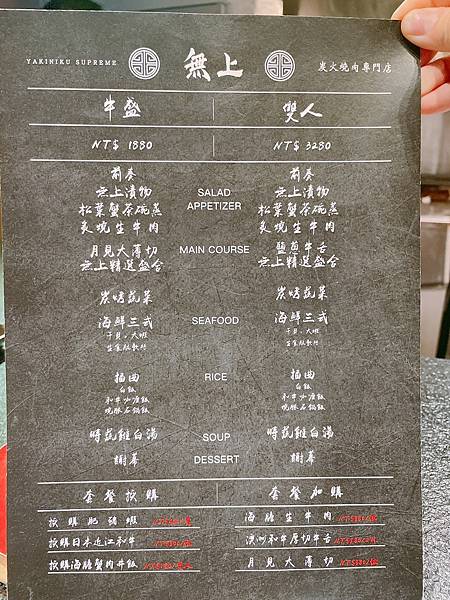 YAKINIKU SUPREME 無上 炭火燒肉專門店
牛盛 雙人
NT$ 1880 NT$ 3280
前奏 前奏
無上漬物 SALAD 無上漬物
松葉蟹茶碗蒸 APPETIZER 松葉蟹茶碗蒸
炙燒生牛肉 炙燒生牛肉
月見大薄切 MAIN COURSE 鹽蔥牛舌
無上精選盛合 無上精選盛合
炭烤蔬菜 炭烤蔬菜
海鮮三式 SEAFOOD 海鮮三式
干貝、大蝦 干貝、大蝦
生食級軟絲 生食級軟絲
插曲 RICE 插曲
白飯 白飯
和牛咖哩飯 和牛咖哩飯
燒豚石鍋飯 燒豚石鍋飯
時蔬雞白湯 SOUP 時蔬雞白湯
謝幕 DESSERT 謝幕
套餐換購 套餐加購
換購肥豬蝦 海膽生牛肉
換購日本近江和牛 澳洲和牛厚切牛舌
換購海膽蟹肉丼飯 月見大薄切